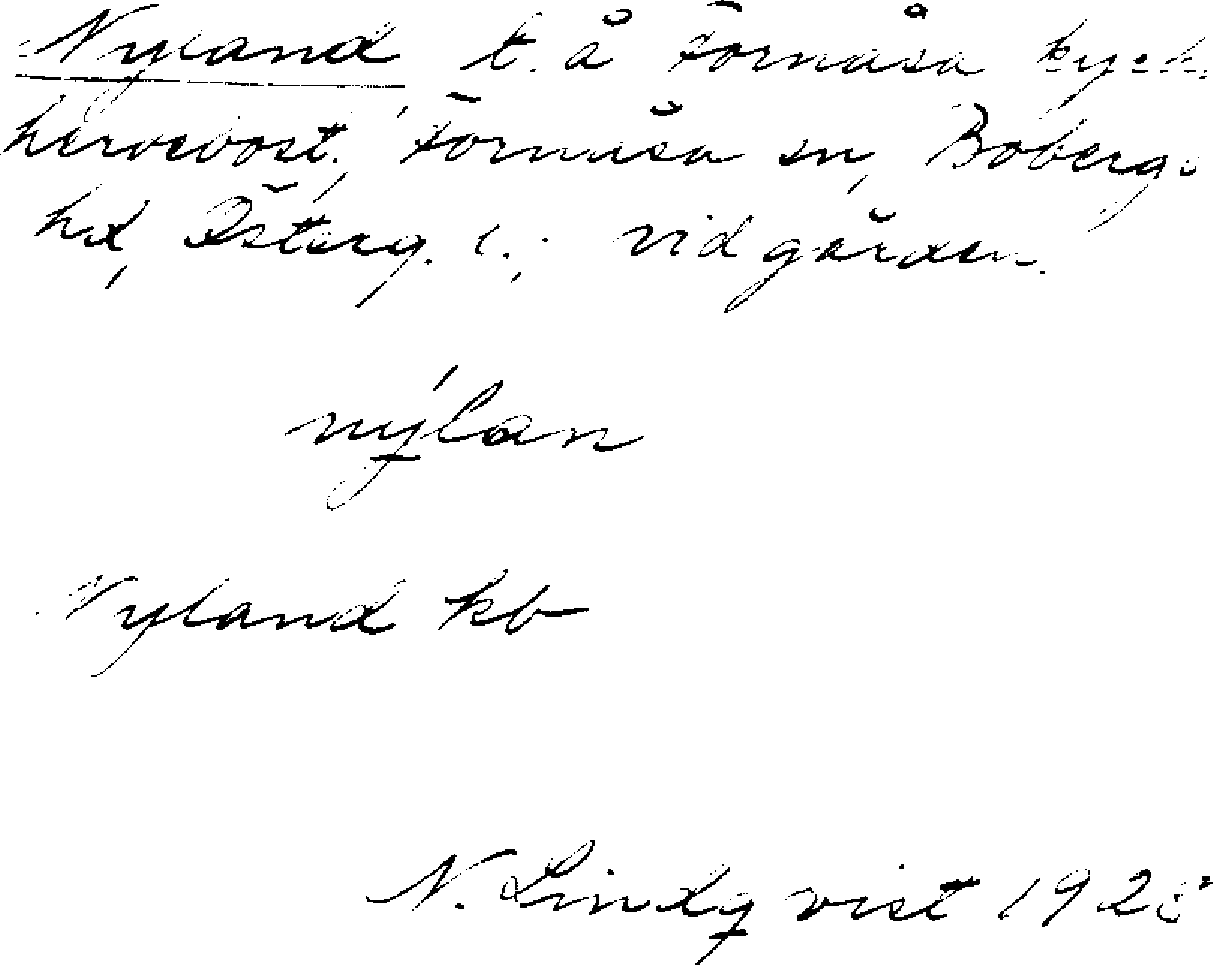 Nyland t. å Fornåsa kyrk-
herrebost., Fornåsa sn, Bobergs
hd, Österg. l.; vid gården.
nýlan
Nyland kb
N. Lindqvist 192